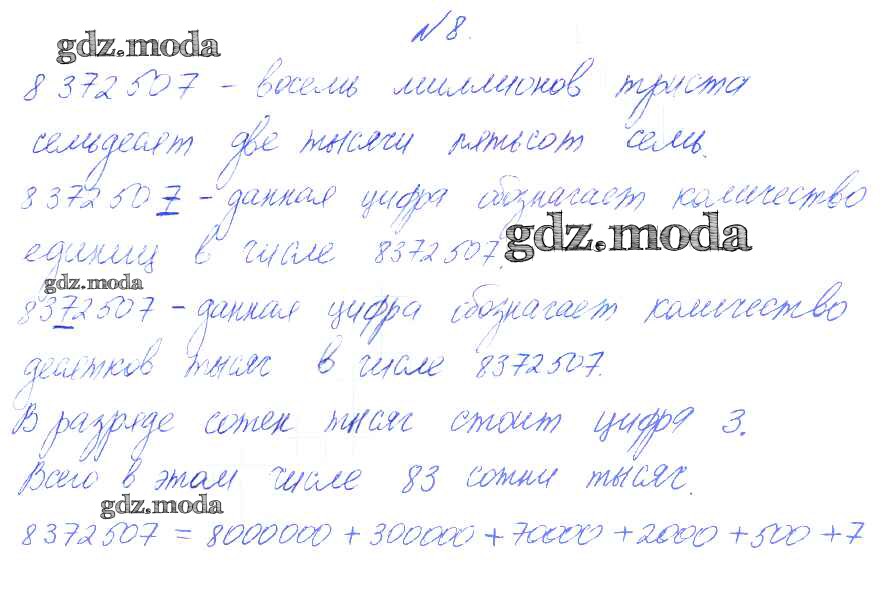 № 8.
gdz.moda
8372507 – восемь миллионов триста
семьдесят две тысячи пятьсот семь.
8372507 – данная цифра обозначает количество
единиц в числе 8372507.
gdz.moda
gdz.moda
8372507 – данная цифра обозначает количество
десятков тысяч в числе 8372507.
В разряде сотен тысяч стоит цифра 3.
Всего в этом числе 83 сотни тысяч.
gdz.moda
8372507 = 8000000 + 300000 + 70000 + 2000 + 500 + 7